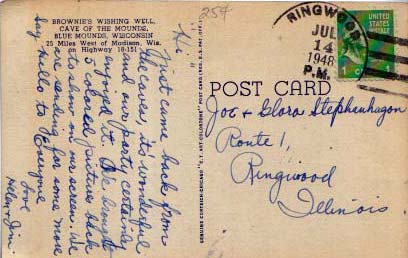 BROWNIE'S WISHING WELL,
CAVE OF THE MOUNDS,
BLUE MOUNDS, WISCONSIN
25 Miles West of Madison, Wis.
on Highway 18-151
25¢
Hi
Just came back from
the caves, its wonderful
and our party certainly
enjoyed it. We brought
5 colored pictures back
to show on our screen. We
are sending for some more
Say hello to Everyone
Love
Helen & Jim.
GENUINE CURTEICH-CHICAGO "C.T. ART-COLORTONE" POST CARD (REG. U.S. PAT. OFF.)
RINGWOOD
JUL
14
1948
P.M.
UNITED STATES
POSTAGE
1 ¢ 1
POST CARD
Joe & Glora Stephenhagon
Route 1,
Ringwood
Illinois.